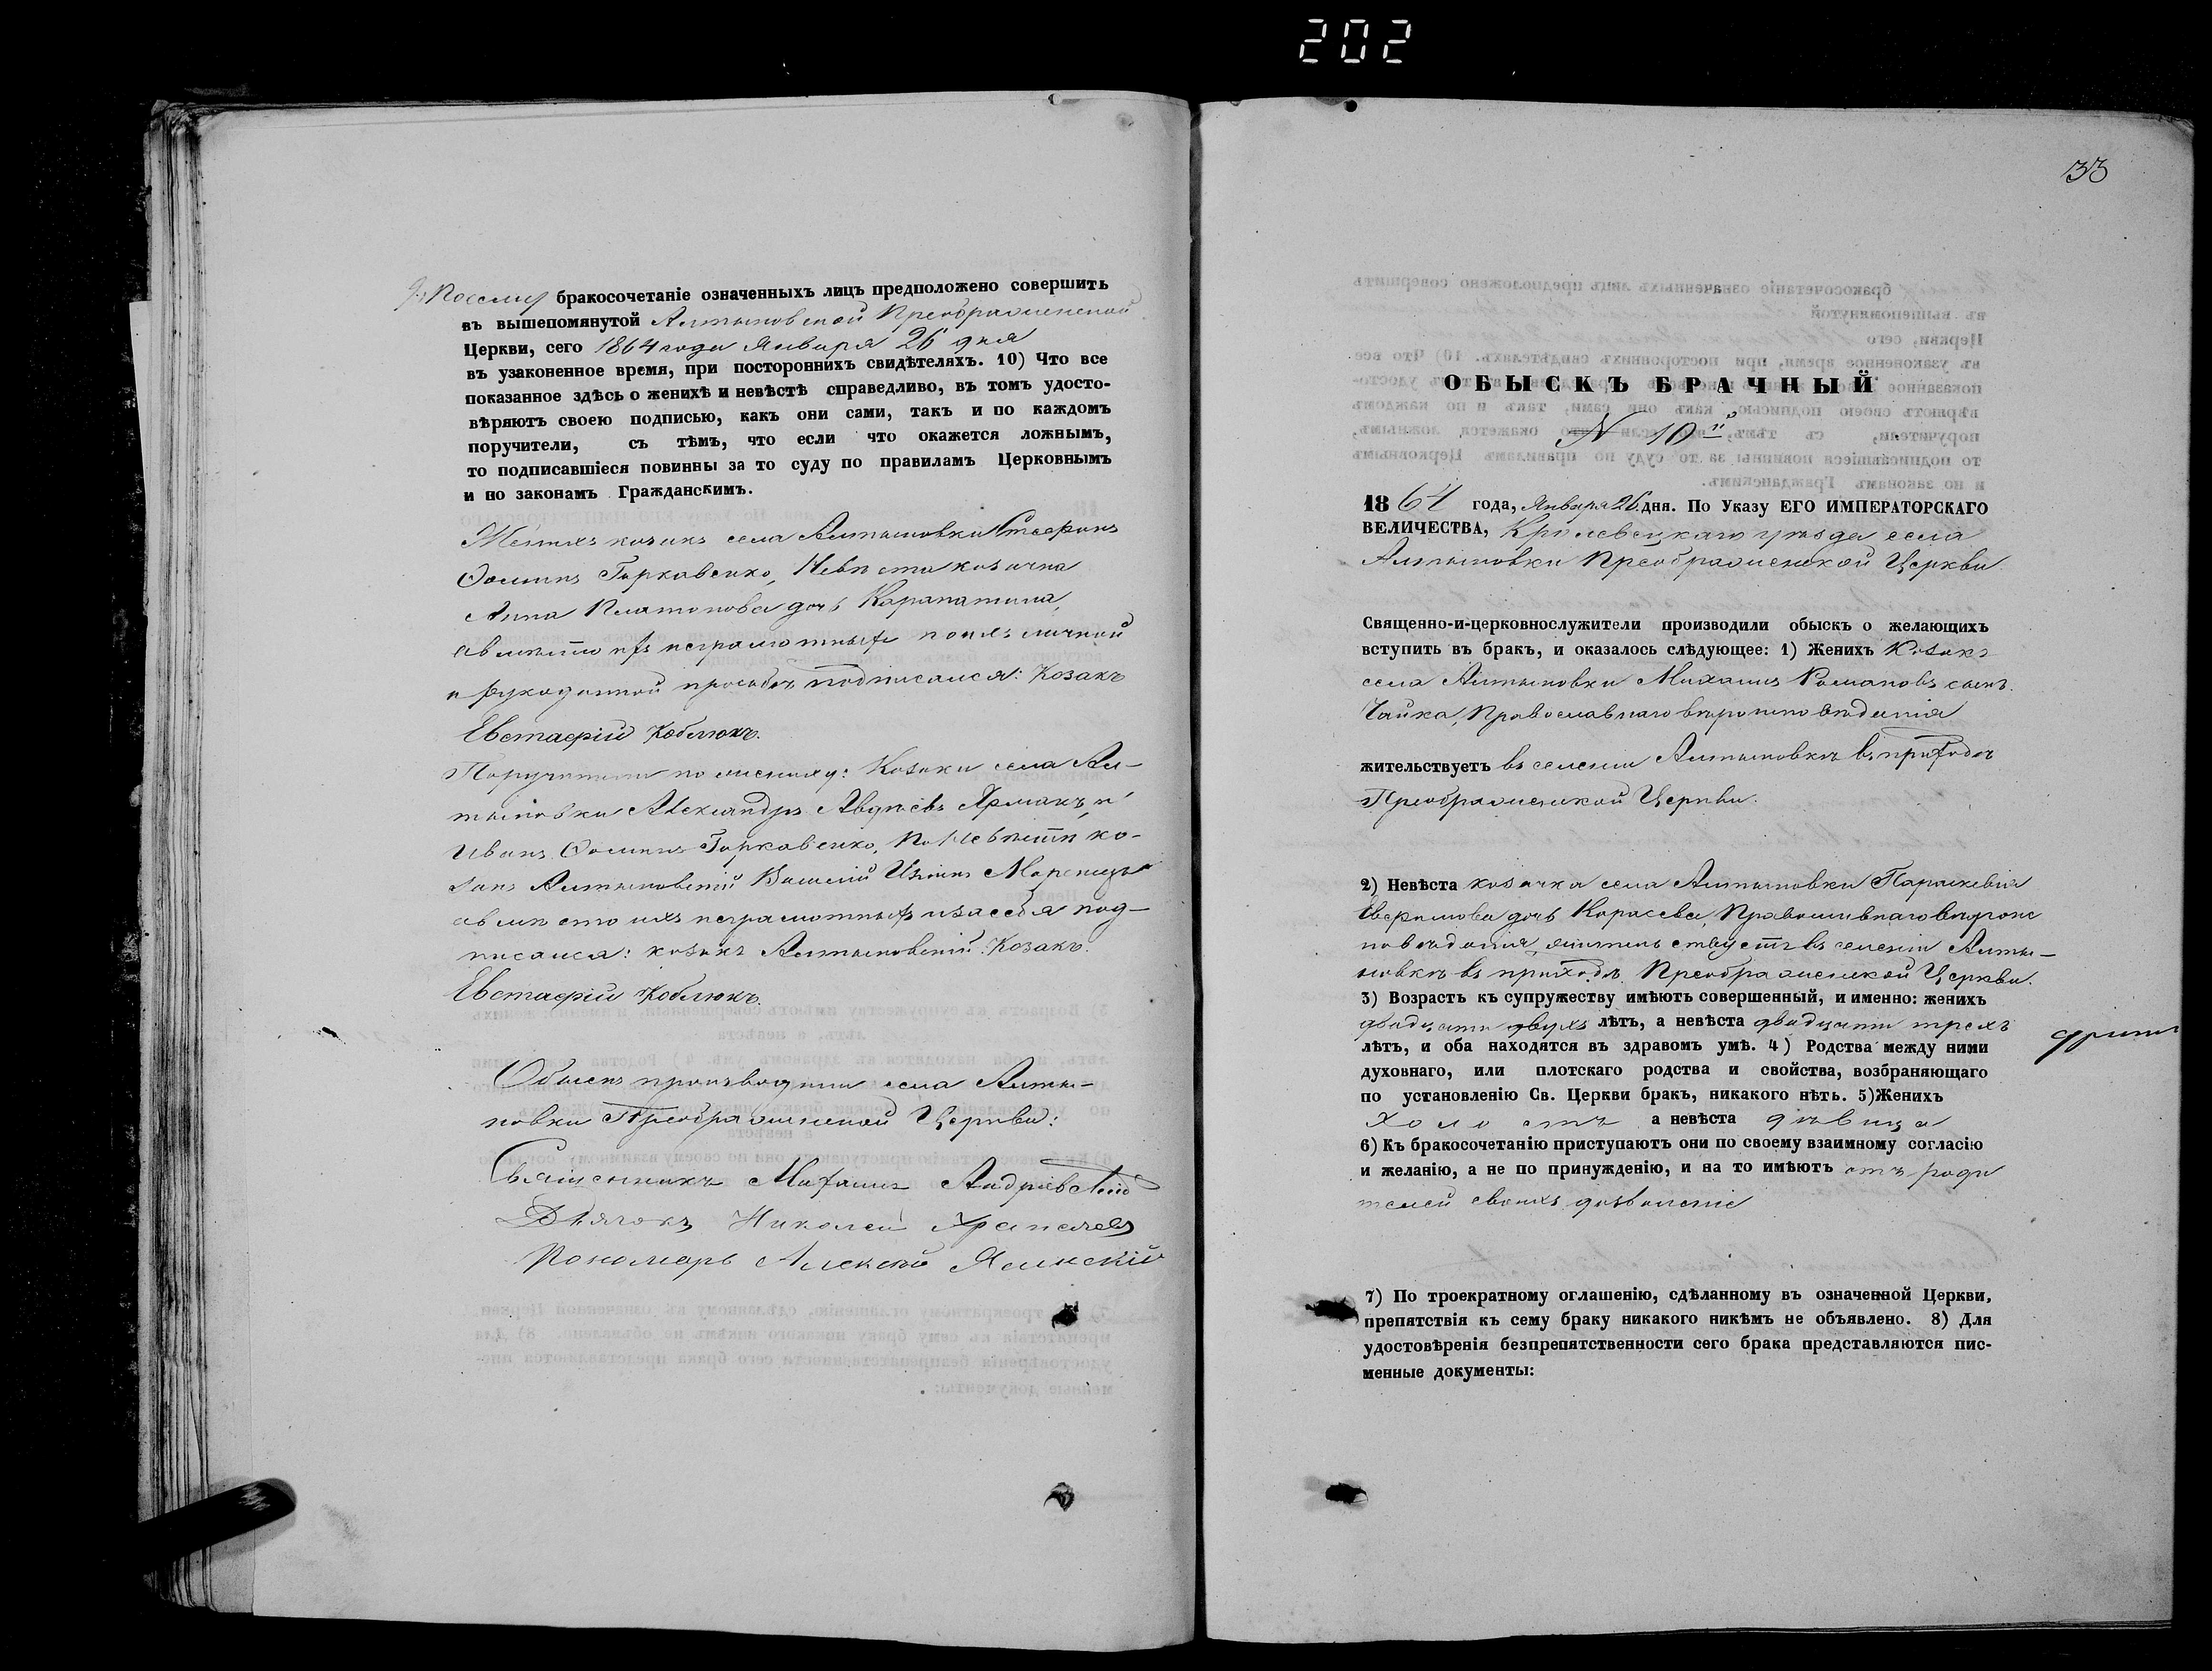 202
9) Посему бракосочетаніе означенныхъ лицъ предположено совершить
въ вышепомянутой Алтыновской Преображенской
Церкви, сего 1864 года Января 26 дня
въ узаконенное время, при постороннихъ свидѣтеляхъ. 10) Что все
показанное здѣсь о женихѣ и невѣстѣ справедливо, въ томъ удосто-
вѣряютъ своею подписью, какъ они сами, такъ и по каждомъ
поручители, съ тѣмъ, что если что окажется ложнымъ,
то подписавшіеся повинны за то суду по правиламъ Церковнымъ
и по законамъ Гражданскимъ.
Женихъ козакъ села Алтыновки Стефанъ
Ѳоминъ Горковенко, Невѣста козачка
Анна Платонова дочь
а вмѣсто ихъ неграмотныхъ по ихъ личной
и рукоданной прозьбѣ подписался: Козакъ
Евстафій Коблюкъ.
Поручители по женихѣ: Козаки села Ал-
тыновки Александръ Авдѣевъ Ярмакъ и
Иванъ Ѳоминъ Горковенко, По Невѣстѣ ко-
закъ Алтыновскій
а вмѣсто ихъ неграмотныхъ и за себя под-
писался: козакъ Алтыновскій Козакъ
Евстафій Коблюкъ.
Обыскъ производили села Алты-
новки Преображенской Церкви:
Священникъ Михаилъ Андріевскій
Дьячокъ Николай
Пономарь Алексѣй Ясинскій
33
ОБЫСКЪ БРАЧНЫЙ
N 10й
1864 года, Января 26 дня. По Указу ЕГО ИМПЕРАТОРСКАГО
ВЕЛИЧЕСТВА, Кролевецкаго уѣзда села
Алтыновки Преображенской Церкви
Священно-и-церковнослужители производили обыскъ о желающихъ
вступить въ бракъ, и оказалось слѣдующее: 1) Женихъ Козакъ
села Алтыновки Михаилъ Романовъ сынъ
Чайка, Православнаго вѣроисповѣданія
жительствуетъ въ селеніи Алтыновкѣ въ приходѣ
Преображенской Церкви.
2) Невѣста козачка села Алтыновки Параскевія
дочь Карасева, Православнаго вѣроис
повѣданія, жительствуетъ въ селеніи Алты-
новкѣ въ приходѣ Преображенской Церкви.
3) Возрастъ къ супружеству имѣютъ совершенный, и именно: женихъ
двадцати двухъ лѣтъ, а невѣста двадцати трехъ
лѣтъ, и оба находятся въ здравомъ умѣ. 4) Родства между ними
духовнаго, или плотскаго родства и свойства, возбраняющаго
по установленію Св. Церкви бракъ, никакого нѣтъ. 5)Женихъ
Холостъ а невѣста дѣвица
6) Къ бракосочетанію приступаютъ они по своему взаимному согласію
и желанію, а не по принужденію, и на то имѣютъ отъ роди
телей своихъ дозволеніе
7) По троекратному оглашенію, сдѣланному въ означенной Церкви,
препятствія къ сему браку никакого никѣмъ не объявлено. 8) Для
удостовѣренія безпрепятственности сего брака представляются пис-
менные документы: